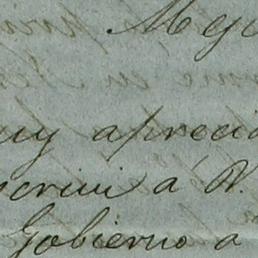 Meji
uy aprecia
scrivi á V.
Gobierno a